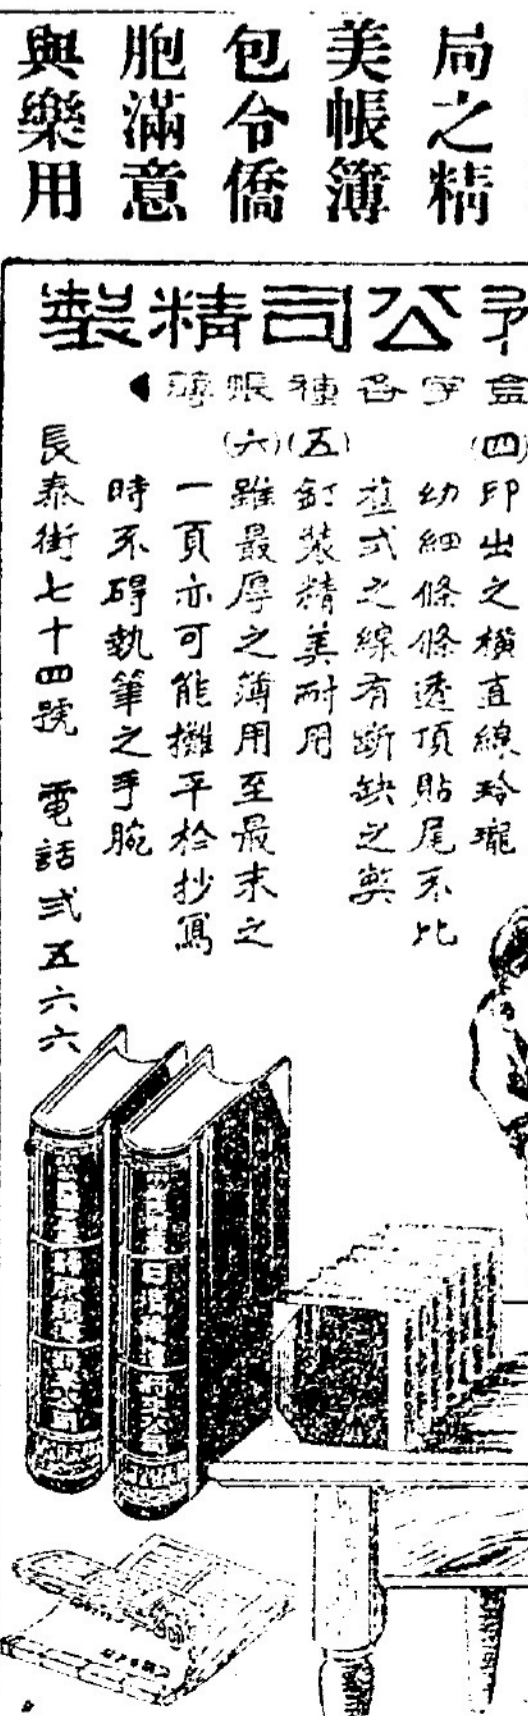 局之精
美帳簿
包令僑
胞滿意
與樂用
公司精製
金字各種帳簿
(四)印出之橫直線玲瓏
幼細條條透頂貼尾不比
舊式之線有斷缺之弊
(五)釘裝精美耐用
(六)雖最厚之簿用至最末之
一頁亦可能攤平於抄寫
時不碍執筆之手腕
長泰街七十四號 電話弍五六六